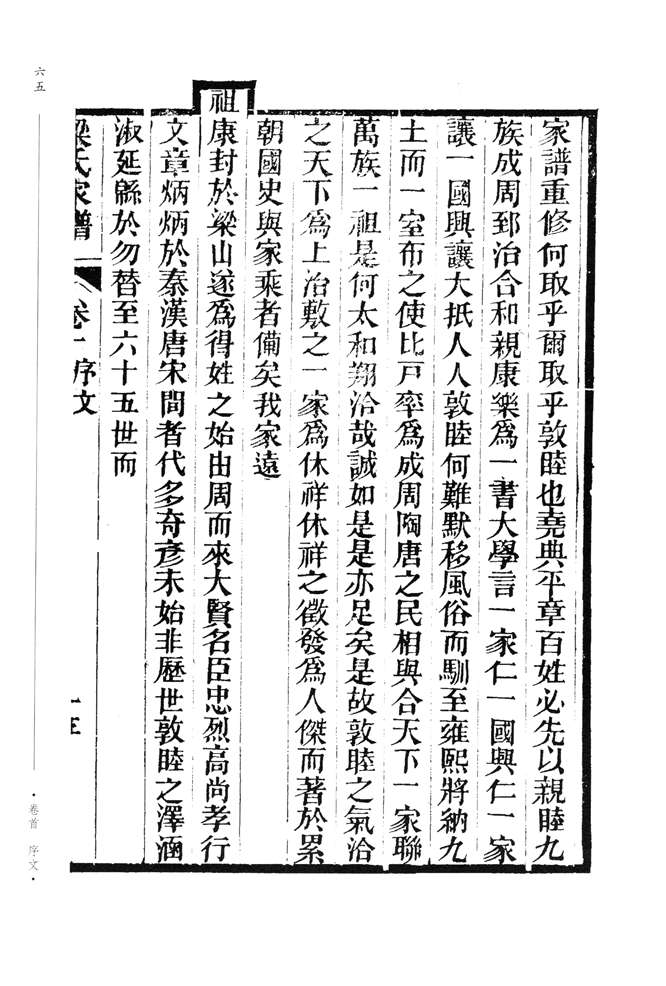 家譜重修何取乎爾取乎敦睦也堯典平章百姓必先以親睦九
族成周郅治合和親康樂爲一書大學言一家仁一國興仁一家
讓一國興讓大抵人人敦睦何難默移風俗而馴至雍熙將納九
土而一室布之使比戸率爲成周陶唐之民相與合天下一家聯
萬族一祖是何太和翔洽哉誠如是是亦足矣是故敦睦之氣洽
之天下爲上治敷之一家爲休祥休祥之徵發爲人傑而著於累
朝國史與家乘者備矣我家遠
祖康封於梁山遂爲得姓之始由周而來大賢名臣忠烈高尚孝行
文章炳炳於秦漢唐宋間者代多奇彥未始非歷世敦睦之澤涵
淑延緜於勿替至六十五世而
梁氏家譜 卷一序文
六五
·卷首 序文·